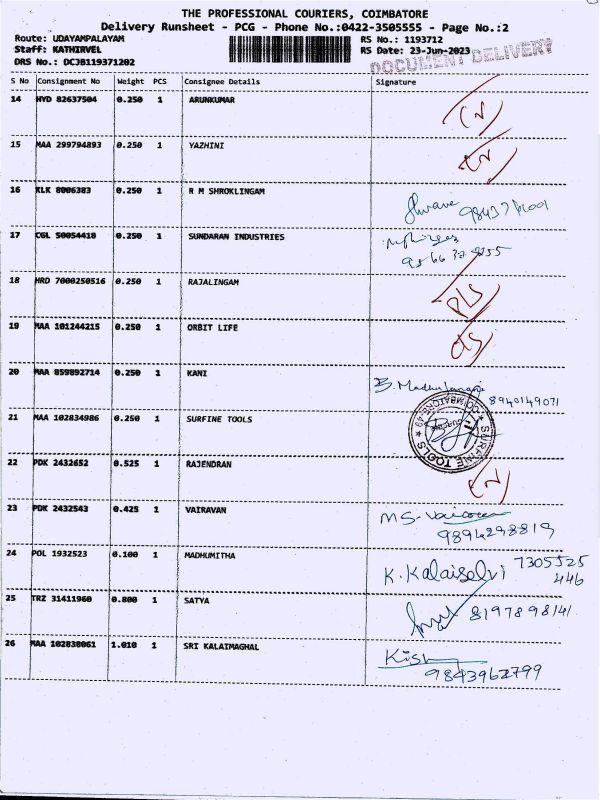 THE PROFESSIONAL COURIERS, COIMBATORE
Delivery Runsheet - PCG - Phone No.:0422-3505555 - Page No.:2
Route: UDAYAMPALAYAM RS No.: 1193712
Staff: KATHIRVEL RS Date: 23-Jun-2023
DRS No.: DCJB119371202 DOCUMENT DELIVERY
S No Consignment No Weight PCS Consignee Details Signature
14 HYD 82637504 0.250 1 ARUNKUMAR
15 MAA 299794893 0.250 1 YAZHINI
16 KLK 8006383 0.250 1 R M SHROKLINGAM
17 CGL 50054418 0.250 1 SUNDARAN INDUSTRIES
18 HRD 7000250516 0.250 1 RAJALINGAM
19 MAA 101244215 0.250 1 ORBIT LIFE
20 MAA 859892714 0.250 1 KANI
8940149071
21 MAA 102834986 0.250 1 SURFINE TOOLS
SURFINE TOOLS
22 PDK 2432652 0.525 1 RAJENDRAN
23 PDK 2432543 0.425 1 VAIRAVAN
9894298819
24 POL 1932523 0.100 1 MADHUMITHA
K. Kalaiselvi 7305525
446
25 TRZ 31411960 0.800 1 SATYA
8197898141
26 MAA 102838061 1.010 1 SRI KALAIMAGHAL
9843962799